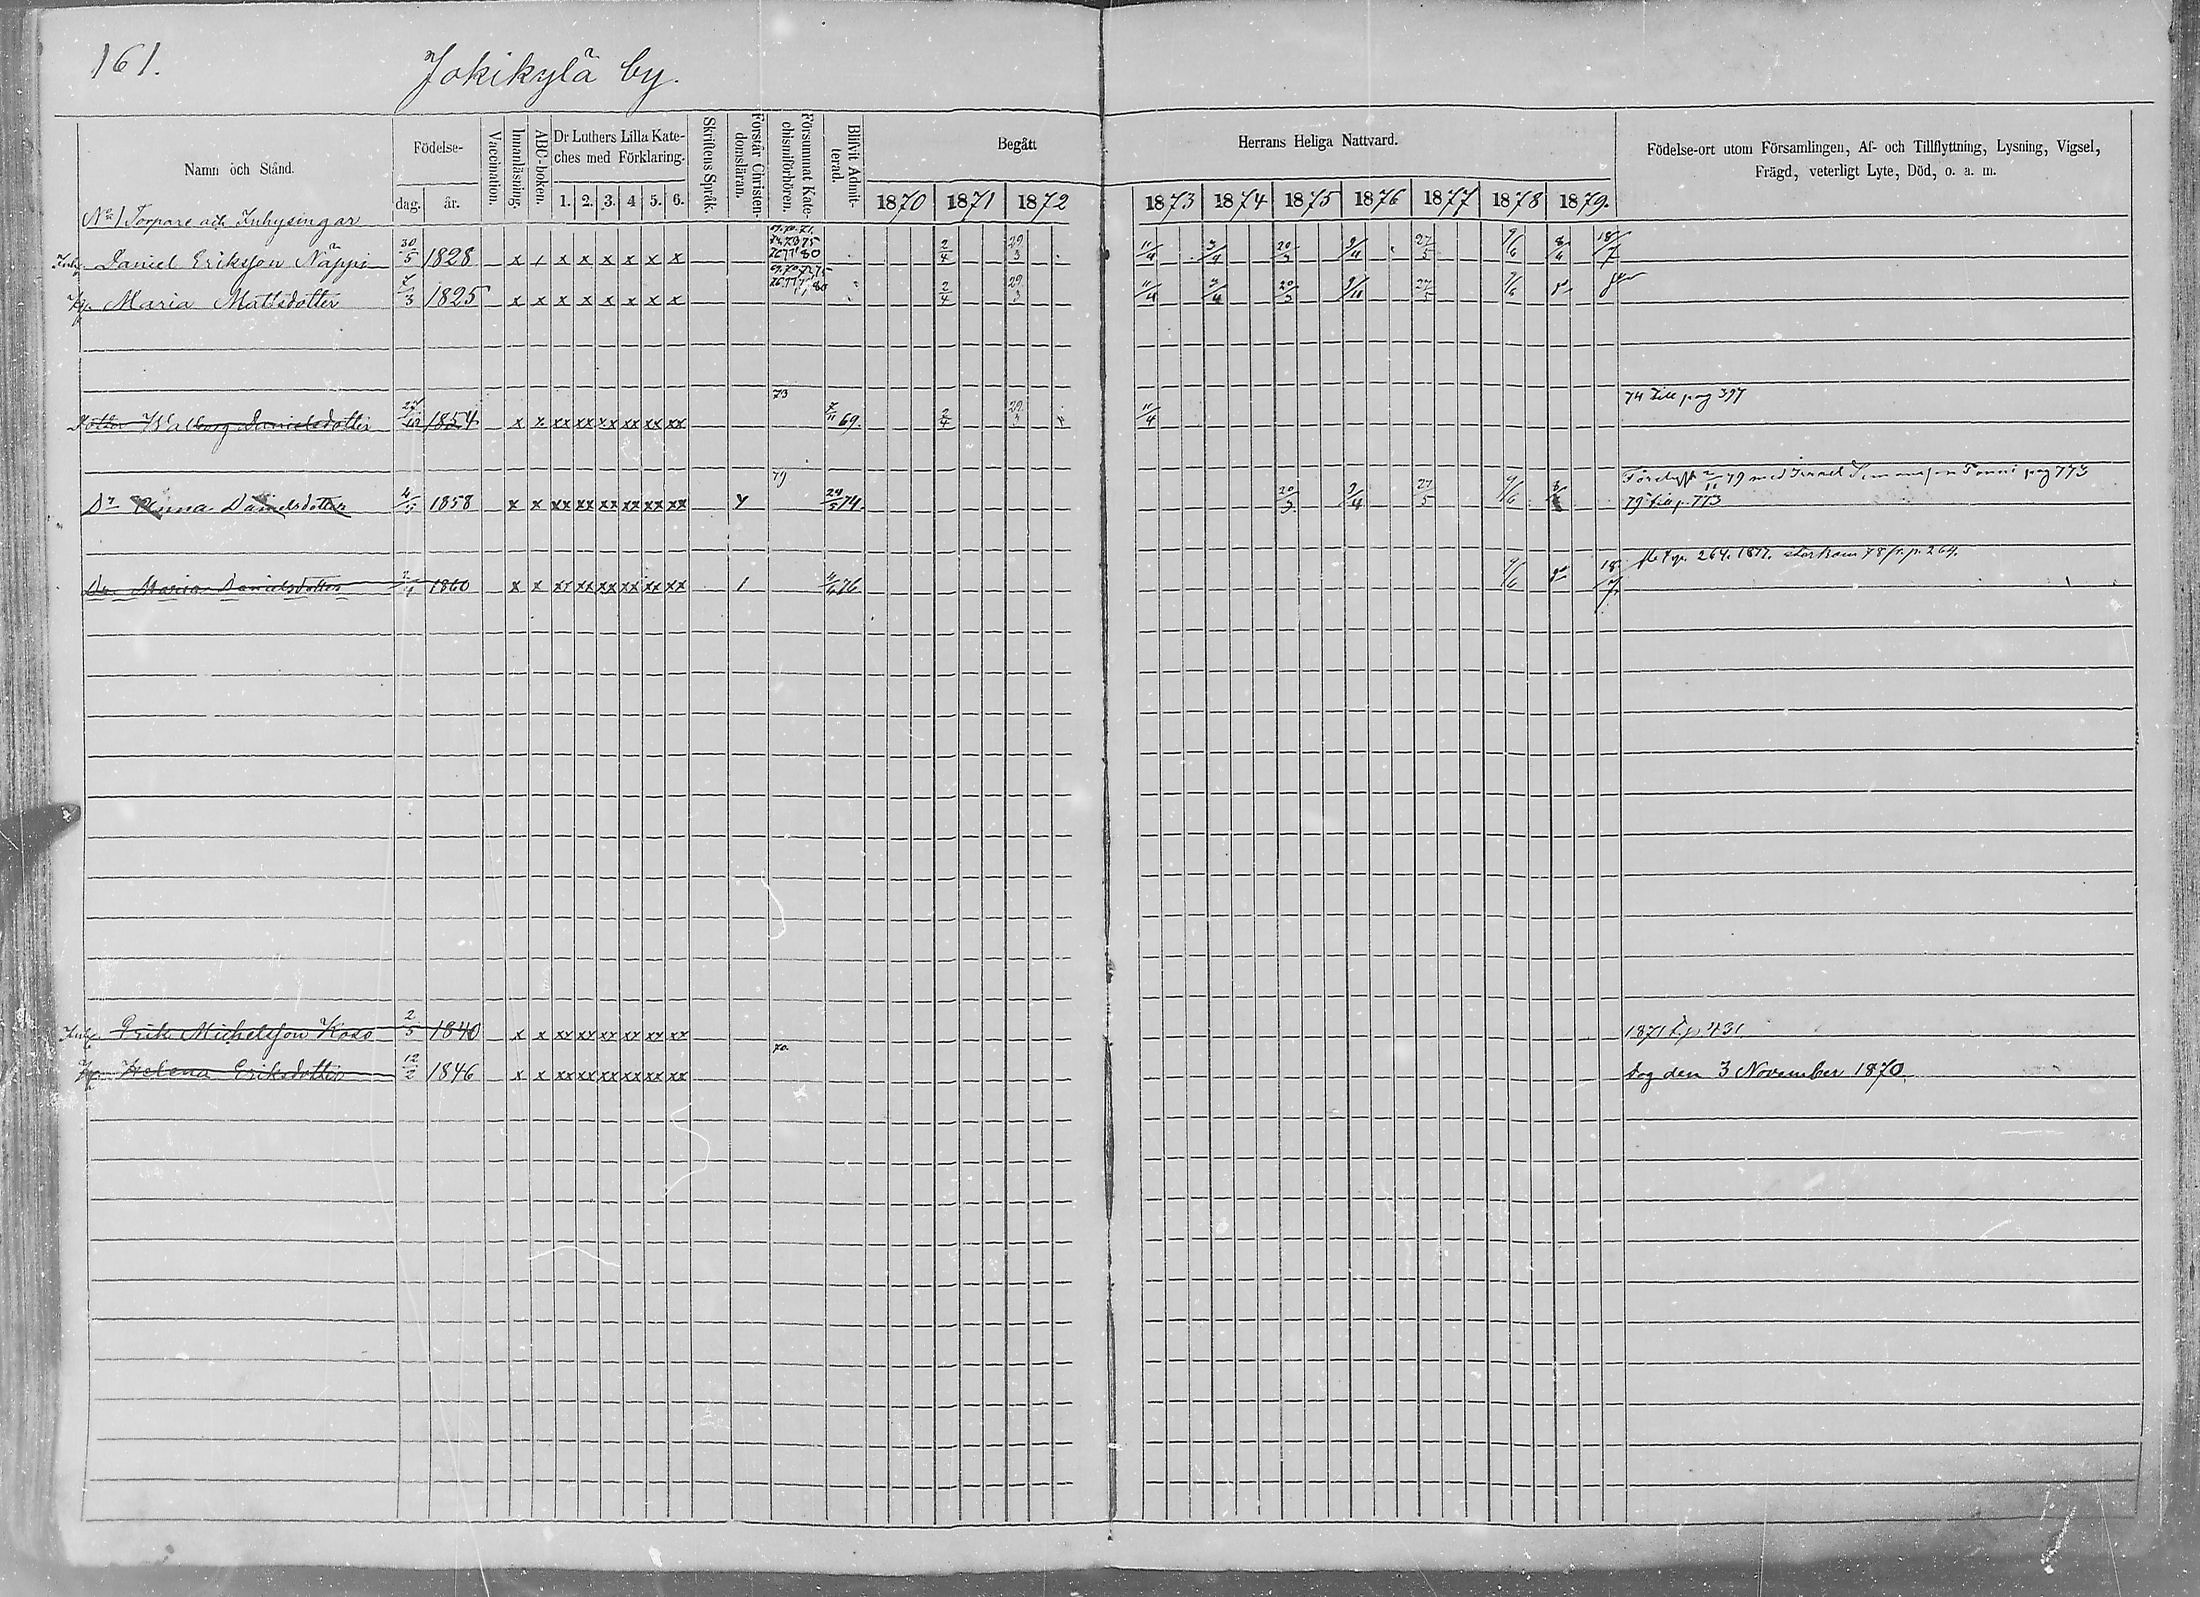 161.
Jokikylä by.
Namn och Stånd.
Födelse-
dag. år.
Vaccination.
Innanläsning.
ABC-boken.
Dr Luthers Lilla Kate-
ches med Förklaring.
1. 2. 3. 4 5. 6.
Skriftens Språk.
Förstår Christen-
domsläran.
Försummat Kate-
chismiförhören.
Blifvit Admit-
terad.
Begått
Herrans Heliga Nattvard.
1870 1871 1872 1873 1874 1875 1876 1877 1878 1879.
Födelse-ort utom Församlingen, Af- och Tillflyttning, Lysning, Vigsel,
Frägd, veterligt Lyte, Död, o. a. m.
No 1 Torpare och Inhysingar
Daniel Eriksson Näppi 30/5 1828 x x x x x x x 2/4 29/3 11/4 20/3 27/5 9/6 18/7
Maria Mattsdotter 1825 x x x x x x x x 2/4 29/3 11/4 20/3 27/5 9/6
Dotter Walborg Danielsdotter 1854 x x xx xx xx xx xx xx 73 69 2/4 29/3 11/4 74 till pag 397
Dr Anna Danielsdotter 1858 x x xx xx xx xx xx xx 79 74 20/3 27/5 9/6 79 till p. 773
Dr Maria Danielsdotter 1860 x x xx xx xx xx xx 76 9/6 18/7 264. 1877. 78 fr. p. 264.
Erik Michelsson Koso 2/5 1840 x x xx xx xx xx xx xx 1871 t. p. 431.
Helena Eriksdotter 12/2 1846 x x xx xx xx xx xx xx 70. dog den 3 November 1870